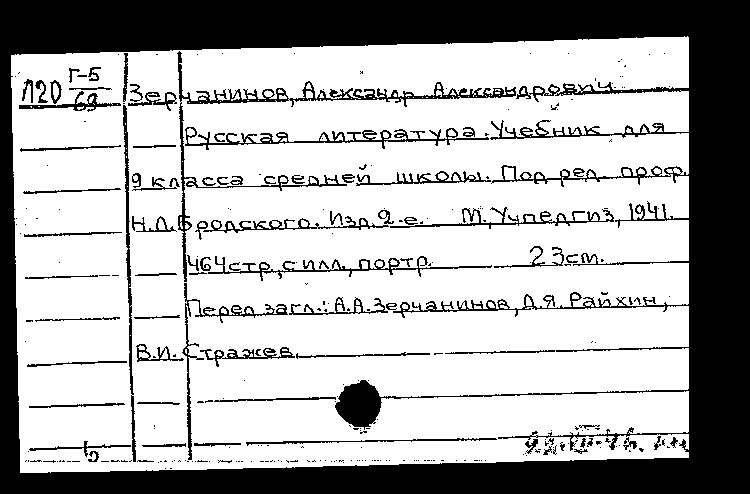 Л20 Г-5/69 Зерчанинов, Александр Александрович
Русская литература. Учебник для
9 класса средней школы. Под ред. проф.
Н.Л.Бродского. Изд. 2-е. М, Учпедгиз, 1941.
464стр, с илл., портр. 23см.
Перед загл.: А.А.Зерчанинов, Д.Я. Райхин,
В.И. Стражев.